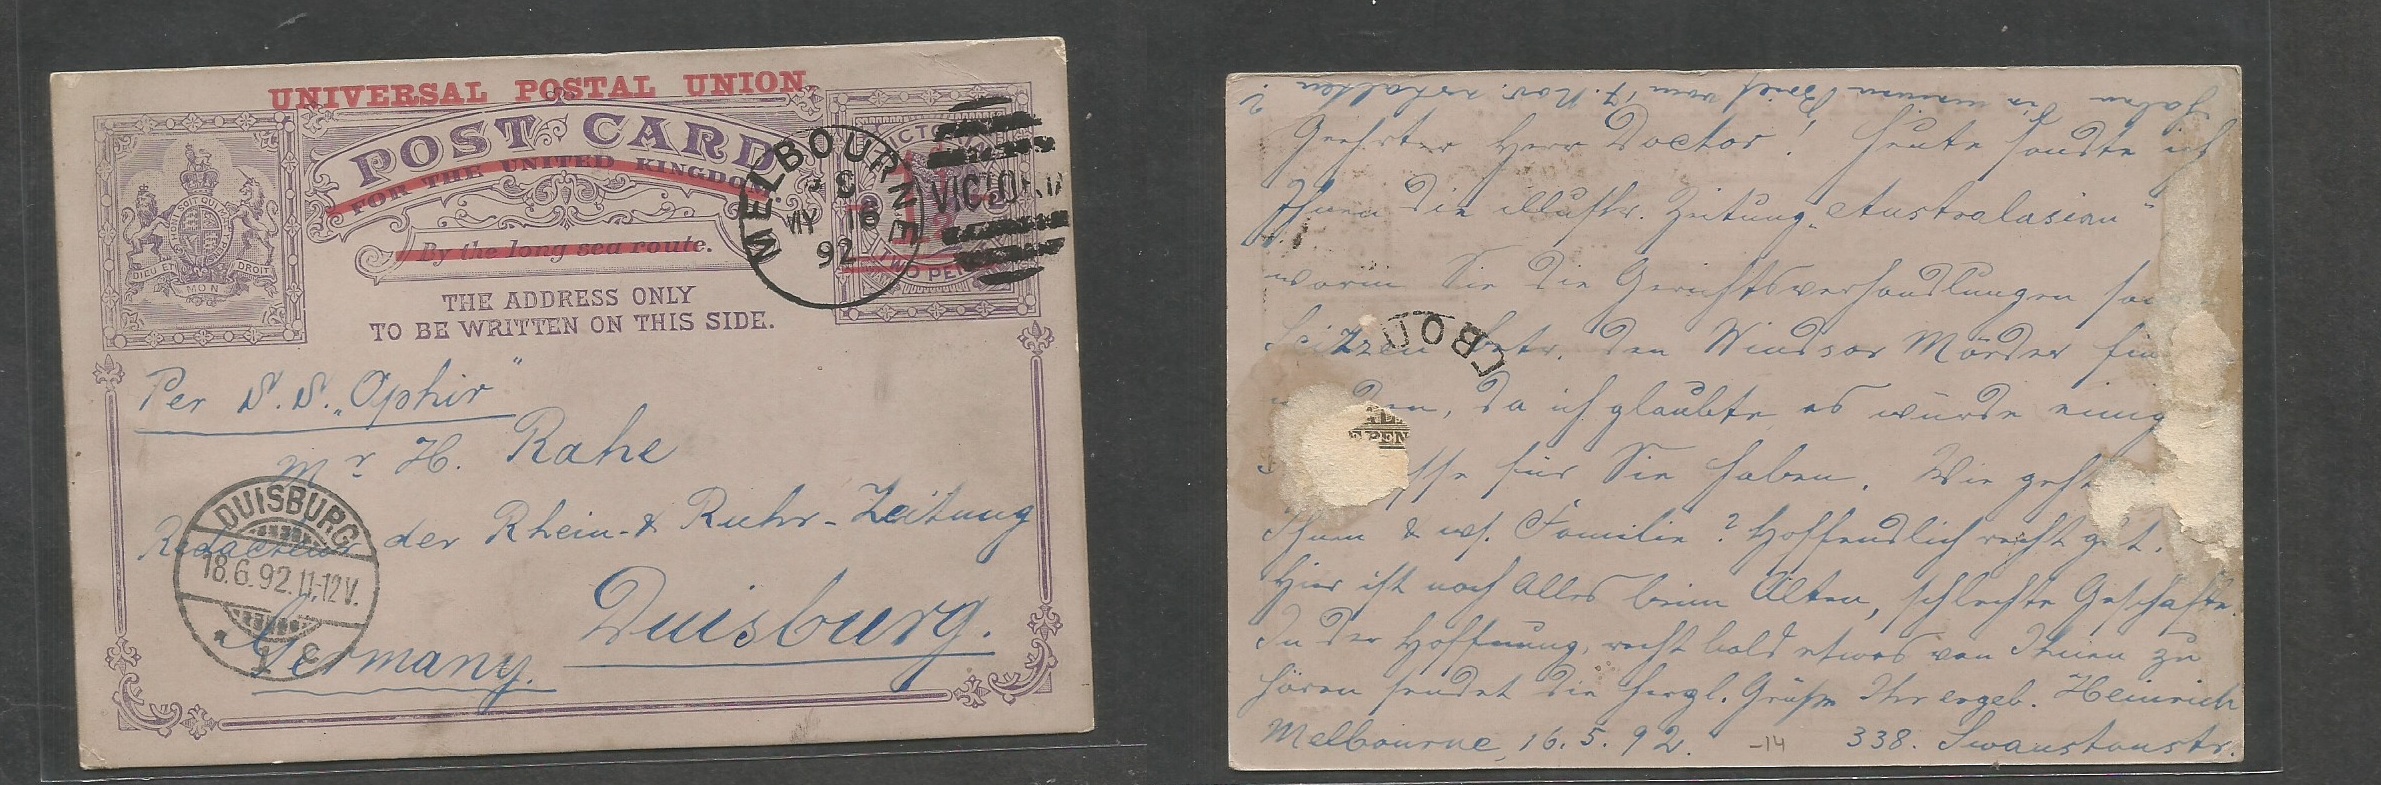 UNIVERSAL POSTAL UNION.
POST CARD
FOR THE UNITED KINGDOM
By the long sea route.
THE ADDRESS ONLY
TO BE WRITTEN ON THIS SIDE.
DIEU ET MON DROIT
VICTO
TWO PE
MELBOURNE
MY 16
92
VICTORIA
Per S.S. „Ophir“
Mr H. Rahe
Redacteur der Rhein- & Ruhr-Zeitung
Duisburg.
Germany.
DUISBURG
18.6.92.11-12V.
1 c
Haben Sie meinen Brief vom 17. Nov. erhalten?
Geehrter Herr Doctor! Heute sandte ich
Ihnen die illustr. Zeitung „Australasian“
worin Sie die Gerichtsverhandlungen
Skizzen betr. den Windsor Mörder
den, da ich glaubte es würde einig
sse für Sie haben. Wie geht
Ihnen & w. Familie? Hoffendlich recht gut.
Hier ist noch Alles beim Alten, schlechte Geschäfte.
In der Hoffnung, recht bald etwas von Ihnen zu
hören sendet die herzl. Grüße Ihr ergeb. Heinrich
Melbourne, 16.5.92. -14 338. Swanstonstr.
LBOU